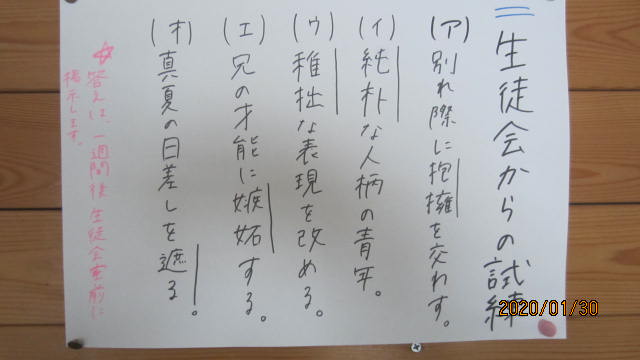 生徒会からの試練
(ア)別れ際に抱擁を交わす。
(イ)純朴な人柄の青年。
(ウ)稚拙な表現を改める。
(エ)兄の才能に嫉妬する。
(オ)真夏の日差しを遮る。
☆答えは、一週間後生徒会室前に
掲示します。
2020/01/30